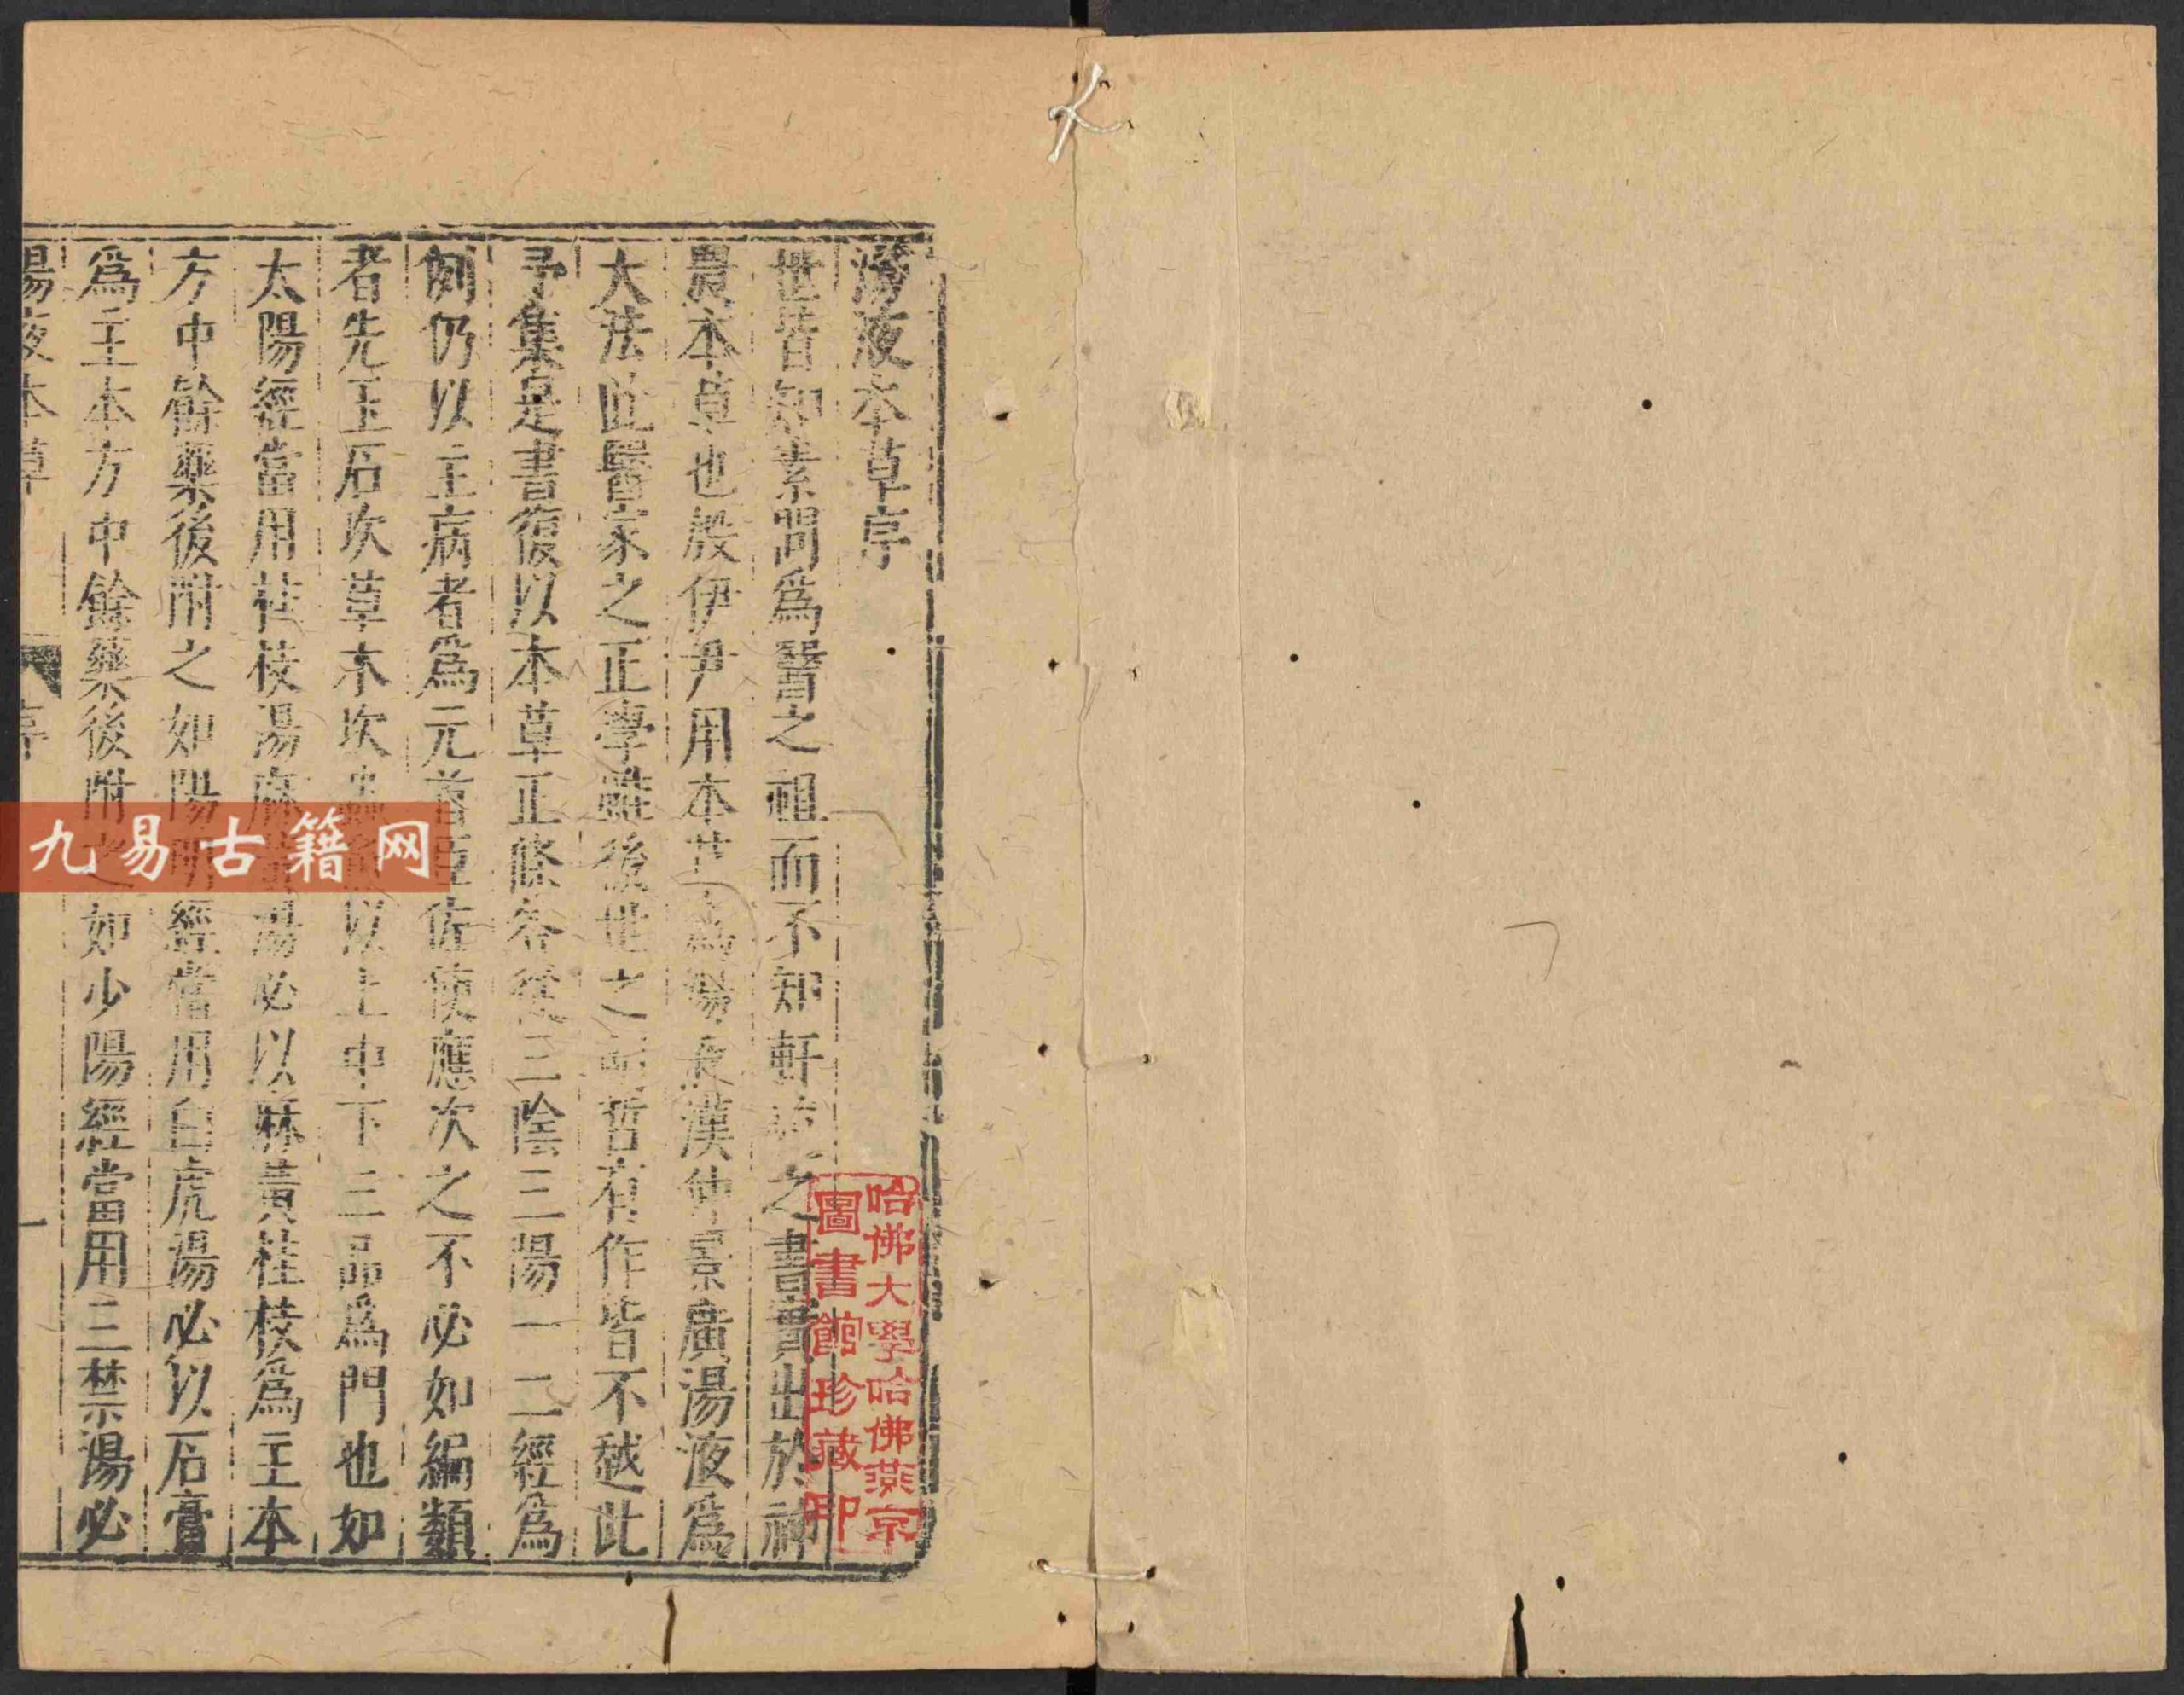 湯液本草序
世皆知素問爲醫之祖而不知軒岐之書實出於神
農本草也殷伊尹用本草爲湯液漢仲景廣湯液爲
大法此醫家之正學雖後世之明哲有作皆不越此
予集是書復以本草正條各從三陰三陽一二經爲
例仍以主病者爲元首臣佐使應次之不必如編類
者先玉石次草木次蟲魚以上中下三品爲門也如
太陽經當用桂枝湯麻黃湯必以麻黃桂枝爲主本
方中餘藥後附之如陽明經當用白虎湯必以石膏
爲主本方中餘藥後附之如少陽經當用三禁湯必
湯液本草 序 一
哈佛大學哈佛燕京
圖書館珍藏印
九易古籍网